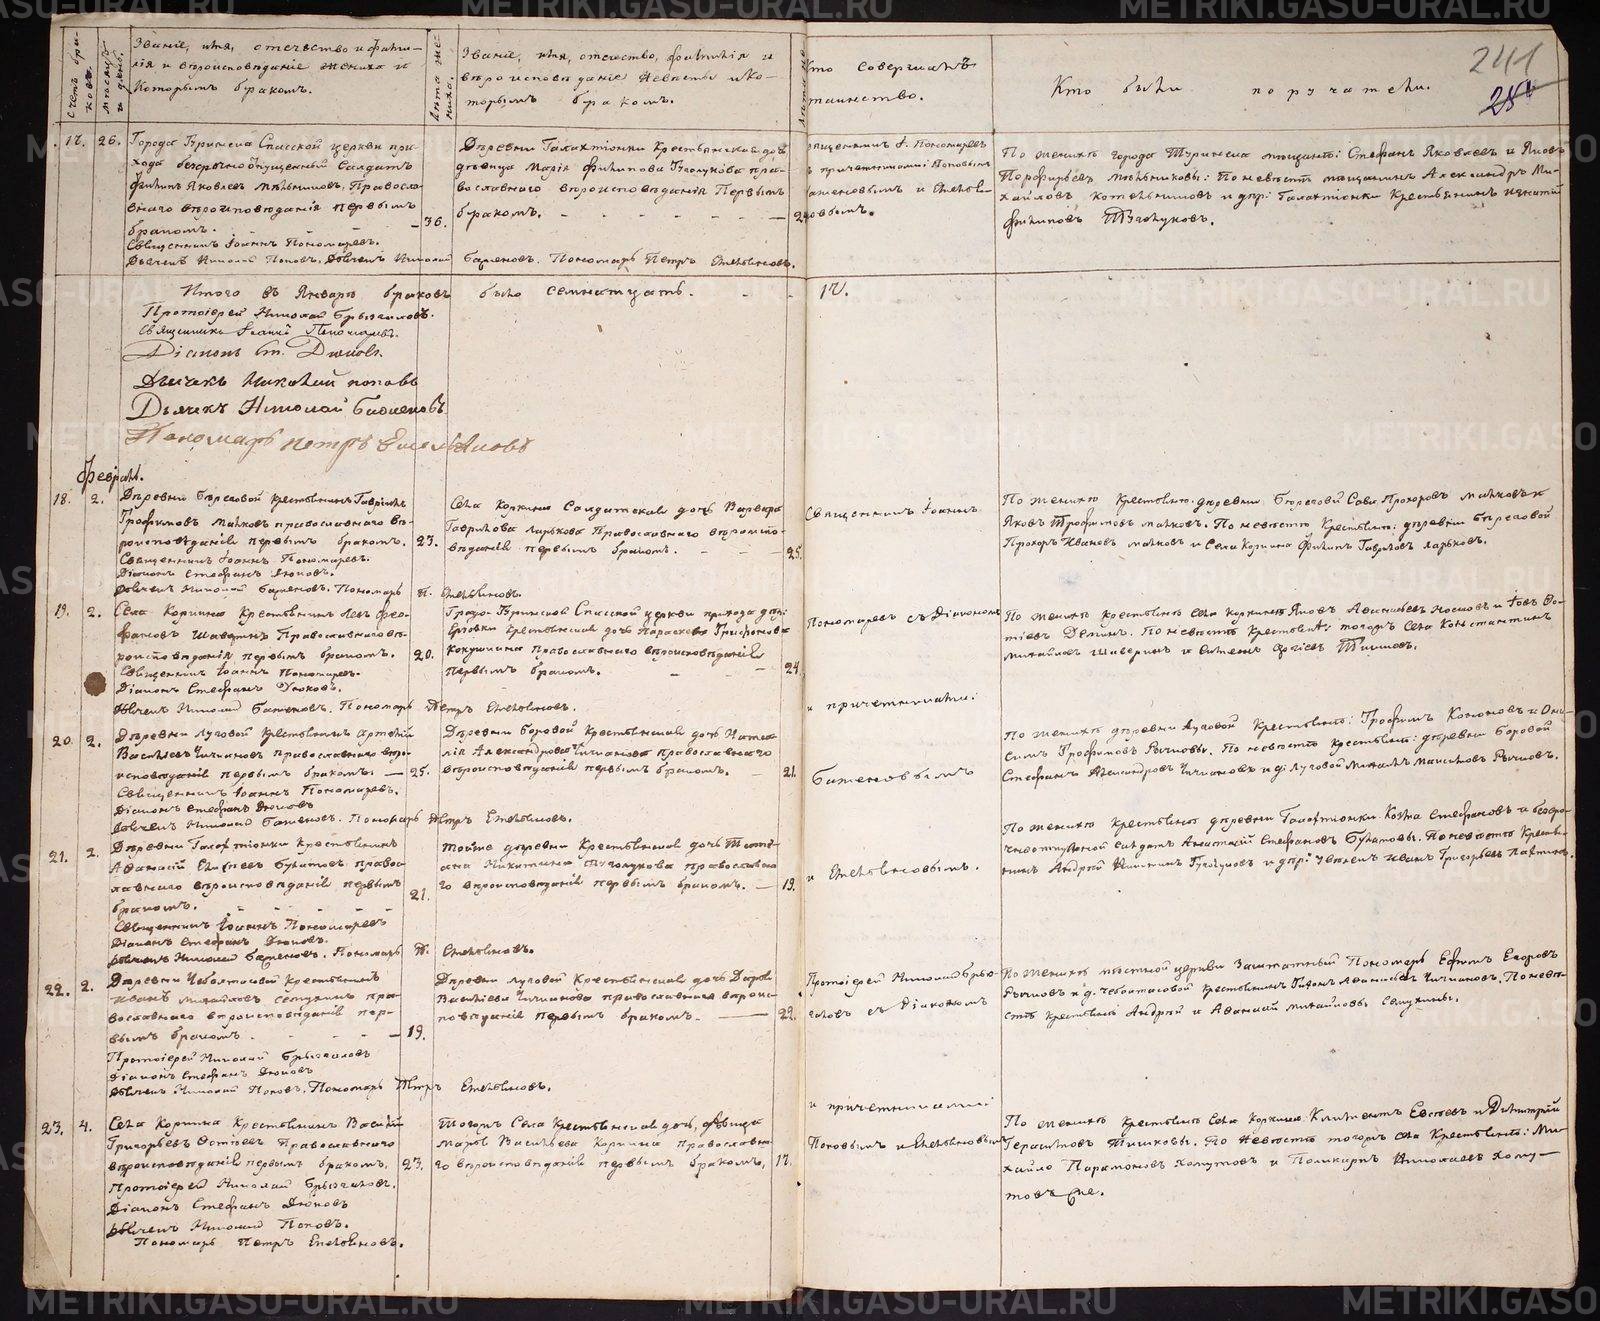 METRIKI.GASU-URAL.RU
241
Счетъ бра-
ковъ.
Мѣсяцъ
и день.
Званіе, имя, отечество и фами-
лія и вѣроисповѣданіе жениха и
которымъ бракомъ.
Лѣта же-
ниха.
Званіе, имя, отечество, фамилія и
вѣроисповѣданіе невѣсты и ко-
торымъ бракомъ.
Кто совершалъ
таинство.
Кто были поручатели.
17. 26.
Города Туринска Спасской церкви при-
хода безсрочноотпущенный Солдатъ
Филипъ Яковлевъ Мѣльниковъ, Правосла-
внаго вѣроисповѣданія первымъ
бракомъ. 36.
Священникъ Іоаннъ Пономаревъ.
Дьячекъ Николай Поповъ. Дьячекъ Николай Баженовъ. Пономарь Петръ Емельяновъ.
Деревни Галактіонки Крестьянская до
дѣвица Марія Филипова пра-
вославнаго вѣроисповѣданія Первымъ
бракомъ.
священникъ І. Пономаревъ
съ причетниками Поповымъ
Баженовымъ и Емелья-
новымъ.
По женихѣ города Туринска мѣщане: Стефанъ Яковлевъ и Яковъ
Порфирьевъ Мѣльниковы: По невѣстѣ мѣщанинъ Александръ Ми-
хайловъ Котельниковъ и дер: Галактіонки Крестьянинъ Игнатій
Филиповъ
Итого въ Январѣ браковъ было семнатцать. 17.
Протоіерей Николай Брызгаловъ.
Священникъ Іоаннъ Пономаревъ.
Діаконъ Ст. Дюковъ.
Дьячекъ Николай Поповъ
Дьячекъ Николай Баженовъ
Пономарь Петръ Емельяновъ
Февраль.
18. 2.
Деревни Береговой крестьянинъ Гавріилъ
Трофимовъ Малковъ православнаго вѣ-
роисповѣданія первымъ бракомъ. 23.
Священникъ Іоаннъ Пономаревъ.
Діаконъ Стефанъ Дюковъ.
Дьячекъ Николай Баженовъ. Пономарь П. Емельяновъ.
Села Коркина Солдатская дочь Варвара
Гаврилова Ларькова Православнаго вѣроиспо-
вѣданія первымъ бракомъ. 25.
Священникъ Іоаннъ
По женихѣ Крестьяне деревни Береговой Сава Прохоровъ Малковъ и
Яковъ Трофимовъ Малковъ. По невѣстѣ Крестьяне: деревни Береговой
Прохоръ Ивановъ Малковъ и Села Коркина Филипъ Гавриловъ Ларьковъ.
19. 2.
Села Коркина Крестьянинъ Левъ Фео-
фановъ Шаверинъ Православнаго вѣ-
роисповѣданія первымъ бракомъ. 20.
Священникъ Іоаннъ Пономаревъ.
Діаконъ Стефанъ Дюковъ.
Дьячекъ Николай Баженовъ. Пономарь Петръ Емельяновъ.
Градо-Туринской Спасской церкви прихода дер:
Крестьянская дочь Параскева Трифонова
Кокушкина Православнаго вѣроисповѣданія
первымъ бракомъ. 24.
Пономаревъ съ Діакономъ
По женихѣ Крестьяне села Коркина Яковъ Афанасьевъ Носковъ и
Деминъ. По невѣстѣ Крестьяне: тогожъ Села Константинъ
Михайловъ Шаверинъ и
и причетниками:
20. 2.
Деревни Луговой Крестьянинъ Артемій
Васильевъ Чичкановъ православнаго вѣро-
исповѣданія первымъ бракомъ. 25.
Священникъ Іоаннъ Пономаревъ.
Діаконъ Стефанъ Дюковъ
Дьячекъ Николай Баженовъ. Пономарь Петръ Емельяновъ.
Деревни Боровой Крестьянская дочь Ната-
лія Александрова Чичканова православнаго
вѣроисповѣданія первымъ бракомъ. 21.
Баженовымъ
По женихѣ деревни Луговой Крестьяне: Трофимъ Кононовъ и Они-
симъ Трофимовъ Рычковы. По невѣстѣ крестьяне: деревни Боровой
Стефанъ Александровъ Чичкановъ и д: Луговой Михаилъ Максимовъ Рычковъ.
21. 2.
Деревни Галактіонки Крестьянинъ
Афанасій Елисеевъ Букатовъ правос-
лавнаго вѣроисповѣданія первымъ
бракомъ. 21.
Священникъ Іоаннъ Пономаревъ
Діаконъ Стефанъ Дюковъ.
Дьячекъ Николай Баженовъ. Пономарь П. Емельяновъ.
Тойже деревни Крестьянская дочь Тати-
ана Никитина православна
го вѣроисповѣданія первымъ бракомъ. 19.
и Емельяновымъ.
По женихѣ Крестьяне деревни Галактіонки Козма Стефановъ и безсро-
чноотпускной солдатъ Анастасій Стефановъ Букатовы. По невѣстѣ Крестья-
нинъ Андрей Никитинъ и дер: Иванъ Григорьевъ
22. 2.
Деревни Чеботасовой Крестьянинъ
Иванъ Михайловъ Семухинъ пра-
вославнаго вѣроисповѣданія пер-
вымъ бракомъ. 19.
Протоіерей Николай Брызгаловъ
Діаконъ Стефанъ Дюковъ
Дьячекъ Николай Поповъ. Пономарь Петръ Емельяновъ.
Деревни Луговой Крестьянская дочь Дарья
Васильева Чичканова православнаго вѣроис-
повѣданія первымъ бракомъ. 22.
Протоіерей Николай Брыз-
галовъ съ Діакономъ
По женихѣ мѣстной церкви Заштатный Пономарь Ефимъ Егоровъ
Рычковъ и д. Чеботасовой Крестьянинъ Афанасьевъ Чичкановъ. По невѣ-
стѣ крестьяне Андрей и Афанасій Михайловы Семухины.
и причетниками
23. 4.
Села Коркина Крестьянинъ Василій
Григорьевъ Фотіевъ Православнаго
вѣроисповѣданія первымъ бракомъ. 23.
Протоіерей Николай Брызгаловъ.
Діаконъ Стефанъ Дюковъ
Дьячекъ Николай Поповъ.
Пономарь Петръ Емельяновъ.
Тогожъ Села Крестьянская дочь, дѣвица
Марѳа Васильева Коркина православна
го вѣроисповѣданія первымъ бракомъ. 17.
Поповымъ и Емельяновымъ
По женихѣ крестьяне Села Коркина: Климентъ Евсеевъ и Димитрій
Герасимовъ Тишковы. По невѣстѣ тогожъ села Крестьяне: Ми-
хайло Парамоновъ Хомутовъ и Поликарпъ Николаевъ Хому-
товъ же.